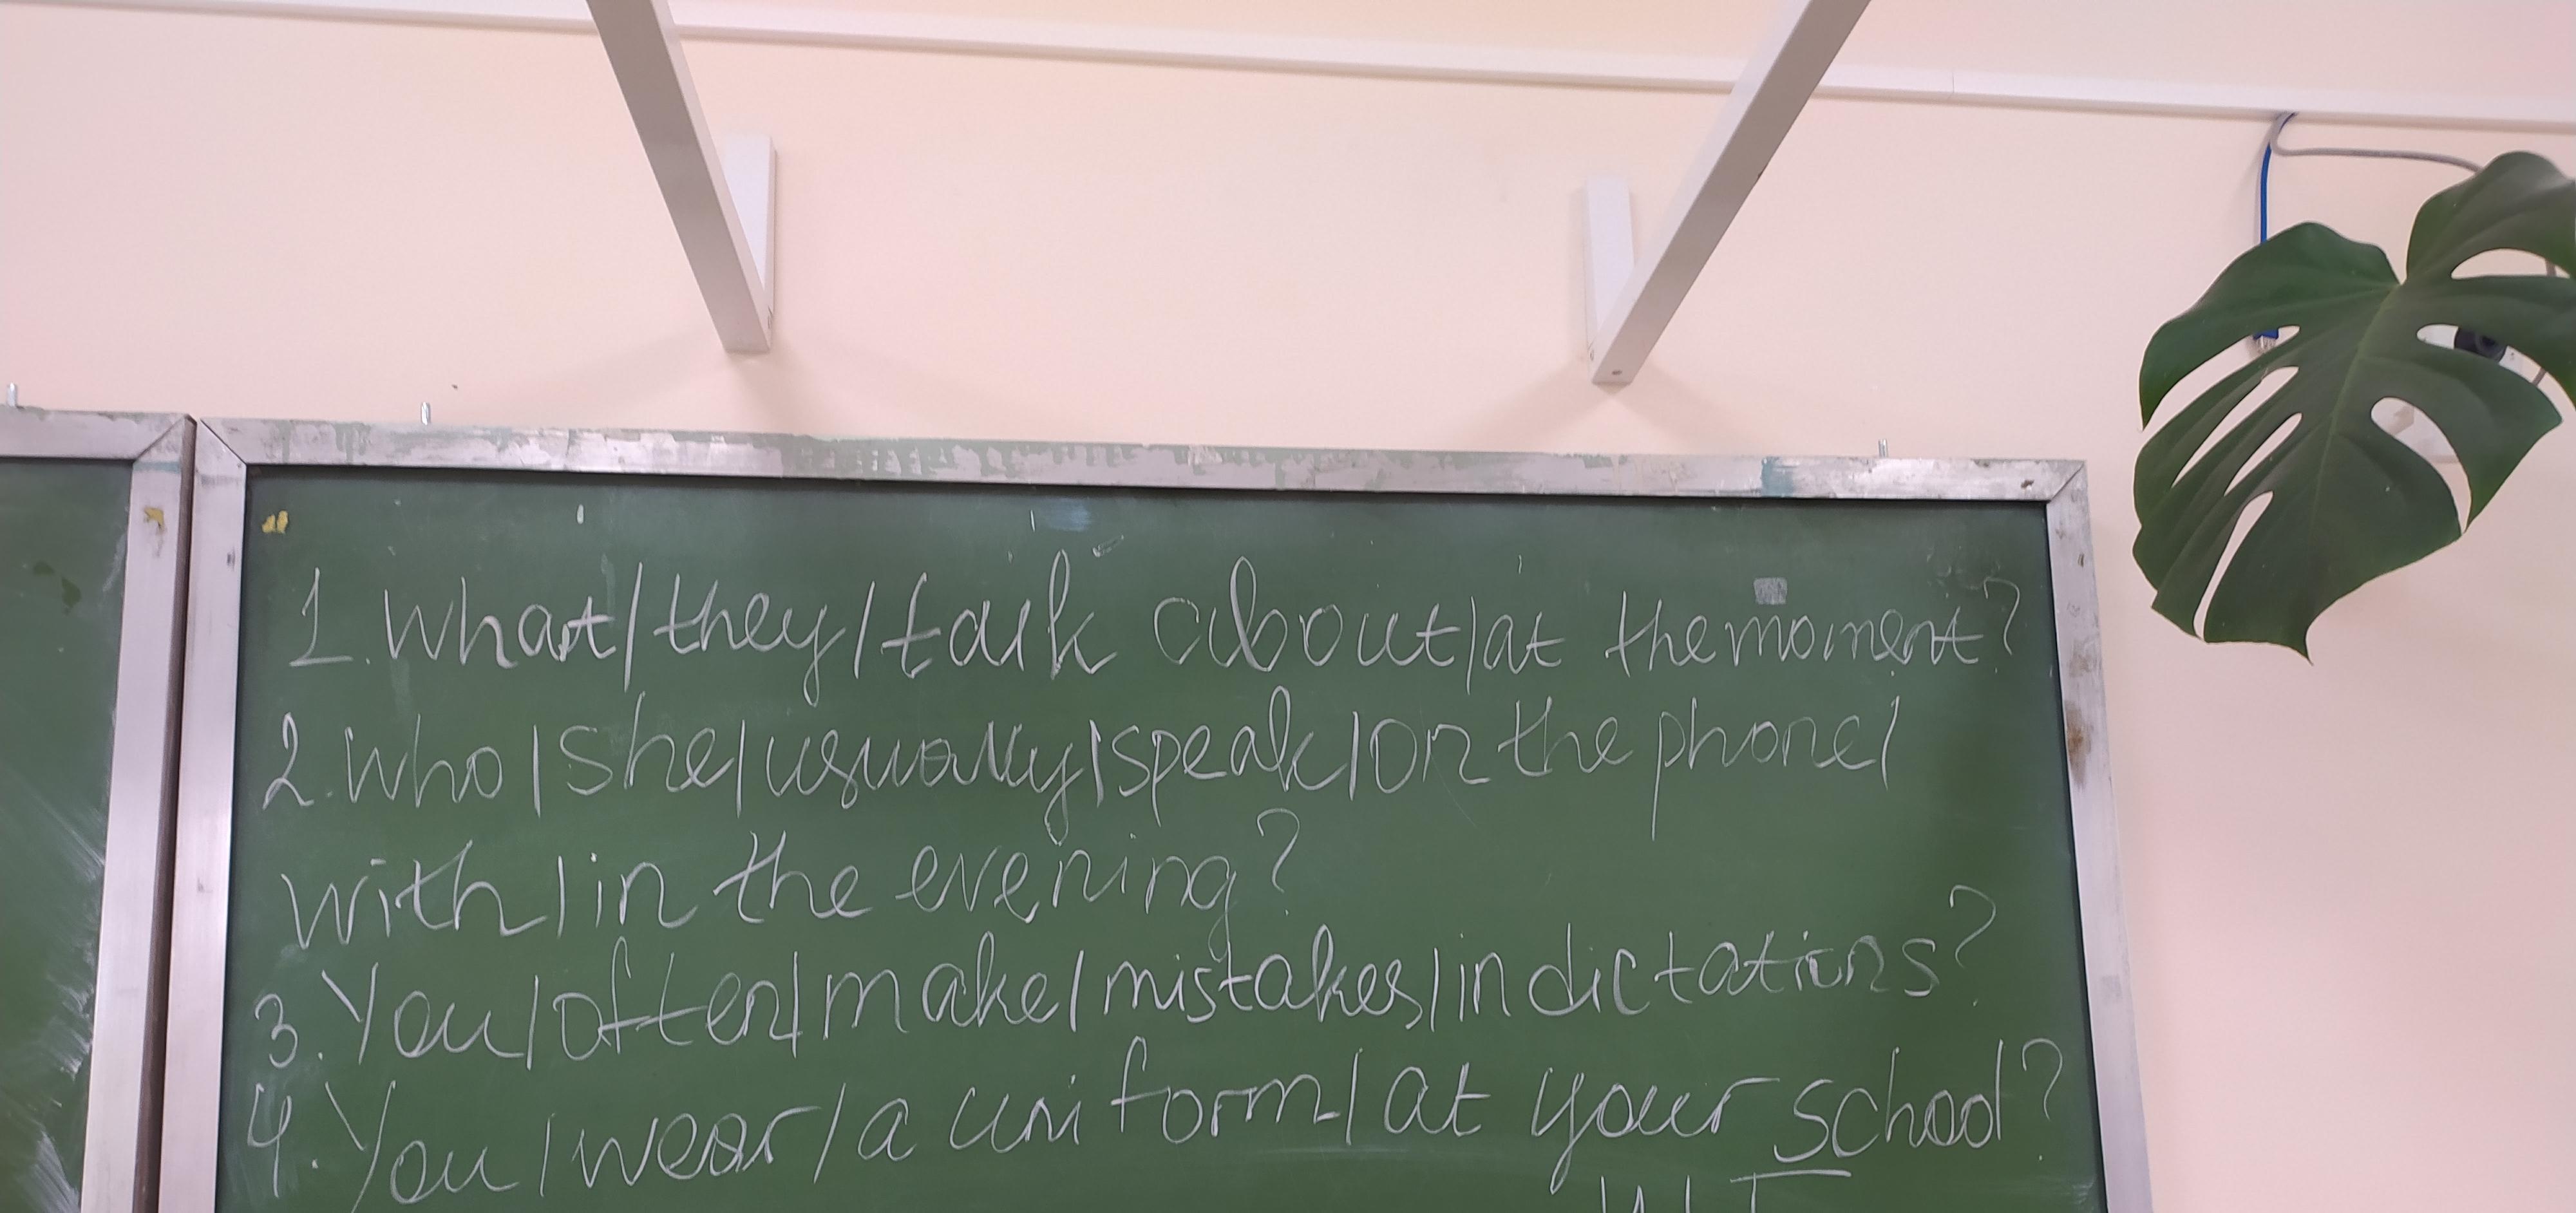 1. What/they/talk about/at the moment?
2. Who/she/usually/speak/on the phone/
with/in the evening?
3. You/often/make/mistakes/in dictations?
4. You/wear/a uniform/at your school?